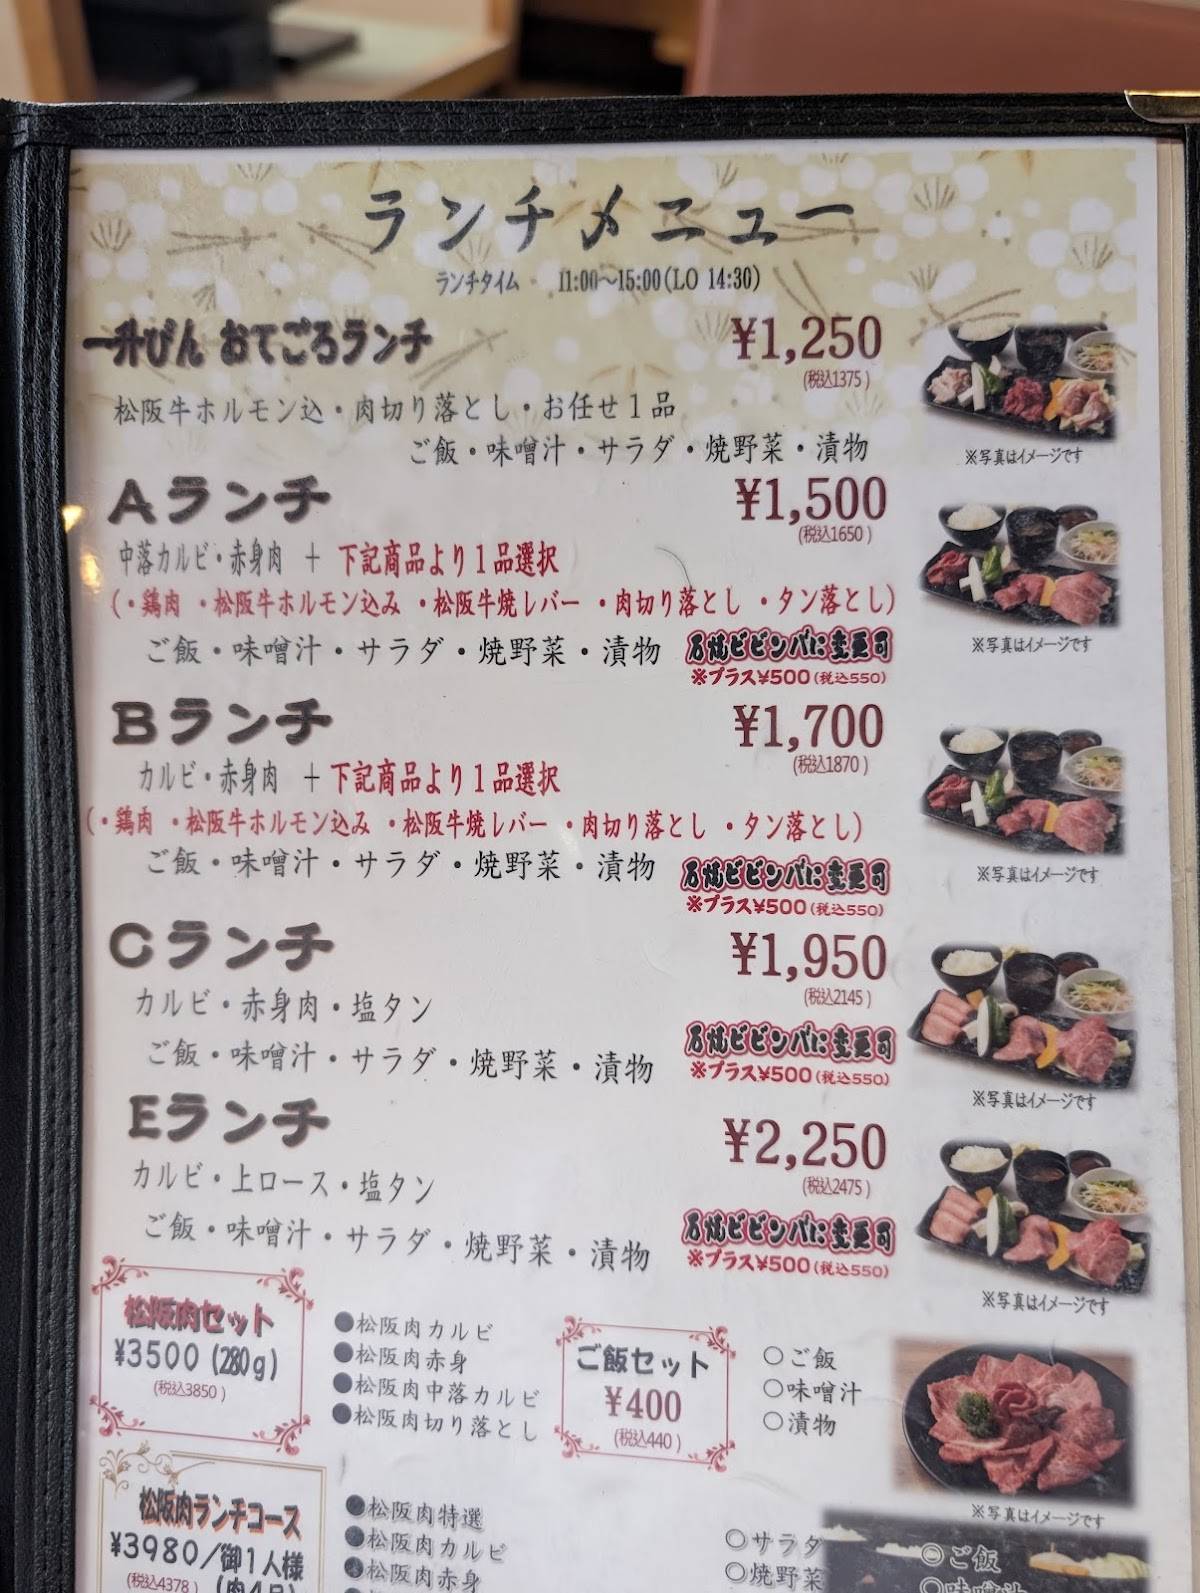 ランチメニュー
ランチタイム 11:00〜15:00(LO 14:30)
一升びん おてごろランチ ¥1,250
(税込1375)
松阪牛ホルモン込・肉切り落とし・お任せ1品
ご飯・味噌汁・サラダ・焼野菜・漬物
※写真はイメージです
Aランチ ¥1,500
(税込1650)
中落カルビ・赤身肉 + 下記商品より1品選択
(・鶏肉 ・松阪牛ホルモン込み ・松阪牛焼レバー ・肉切り落とし ・タン落とし)
ご飯・味噌汁・サラダ・焼野菜・漬物
石焼ビビンバに変更可
※プラス¥500(税込550)
※写真はイメージです
Bランチ ¥1,700
(税込1870)
カルビ・赤身肉 +下記商品より1品選択
(・鶏肉 ・松阪牛ホルモン込み ・松阪牛焼レバー ・肉切り落とし ・タン落とし)
ご飯・味噌汁・サラダ・焼野菜・漬物
石焼ビビンバに変更可
※プラス¥500(税込550)
※写真はイメージです
Cランチ ¥1,950
(税込2145)
カルビ・赤身肉・塩タン
ご飯・味噌汁・サラダ・焼野菜・漬物
石焼ビビンバに変更可
※プラス¥500(税込550)
※写真はイメージです
Eランチ ¥2,250
(税込2475)
カルビ・上ロース・塩タン
ご飯・味噌汁・サラダ・焼野菜・漬物
石焼ビビンバに変更可
※プラス¥500(税込550)
※写真はイメージです
松阪肉セット
¥3500(280g)
(税込3850)
●松阪肉カルビ
●松阪肉赤身
●松阪肉中落カルビ
●松阪肉切り落とし
ご飯セット
¥400
(税込440)
○ご飯
○味噌汁
○漬物
※写真はイメージです
松阪肉ランチコース
¥3980/御1人様
(税込4378)
●松阪肉特選
●松阪肉カルビ
●松阪肉赤身
○サラダ
○焼野菜
○ご飯